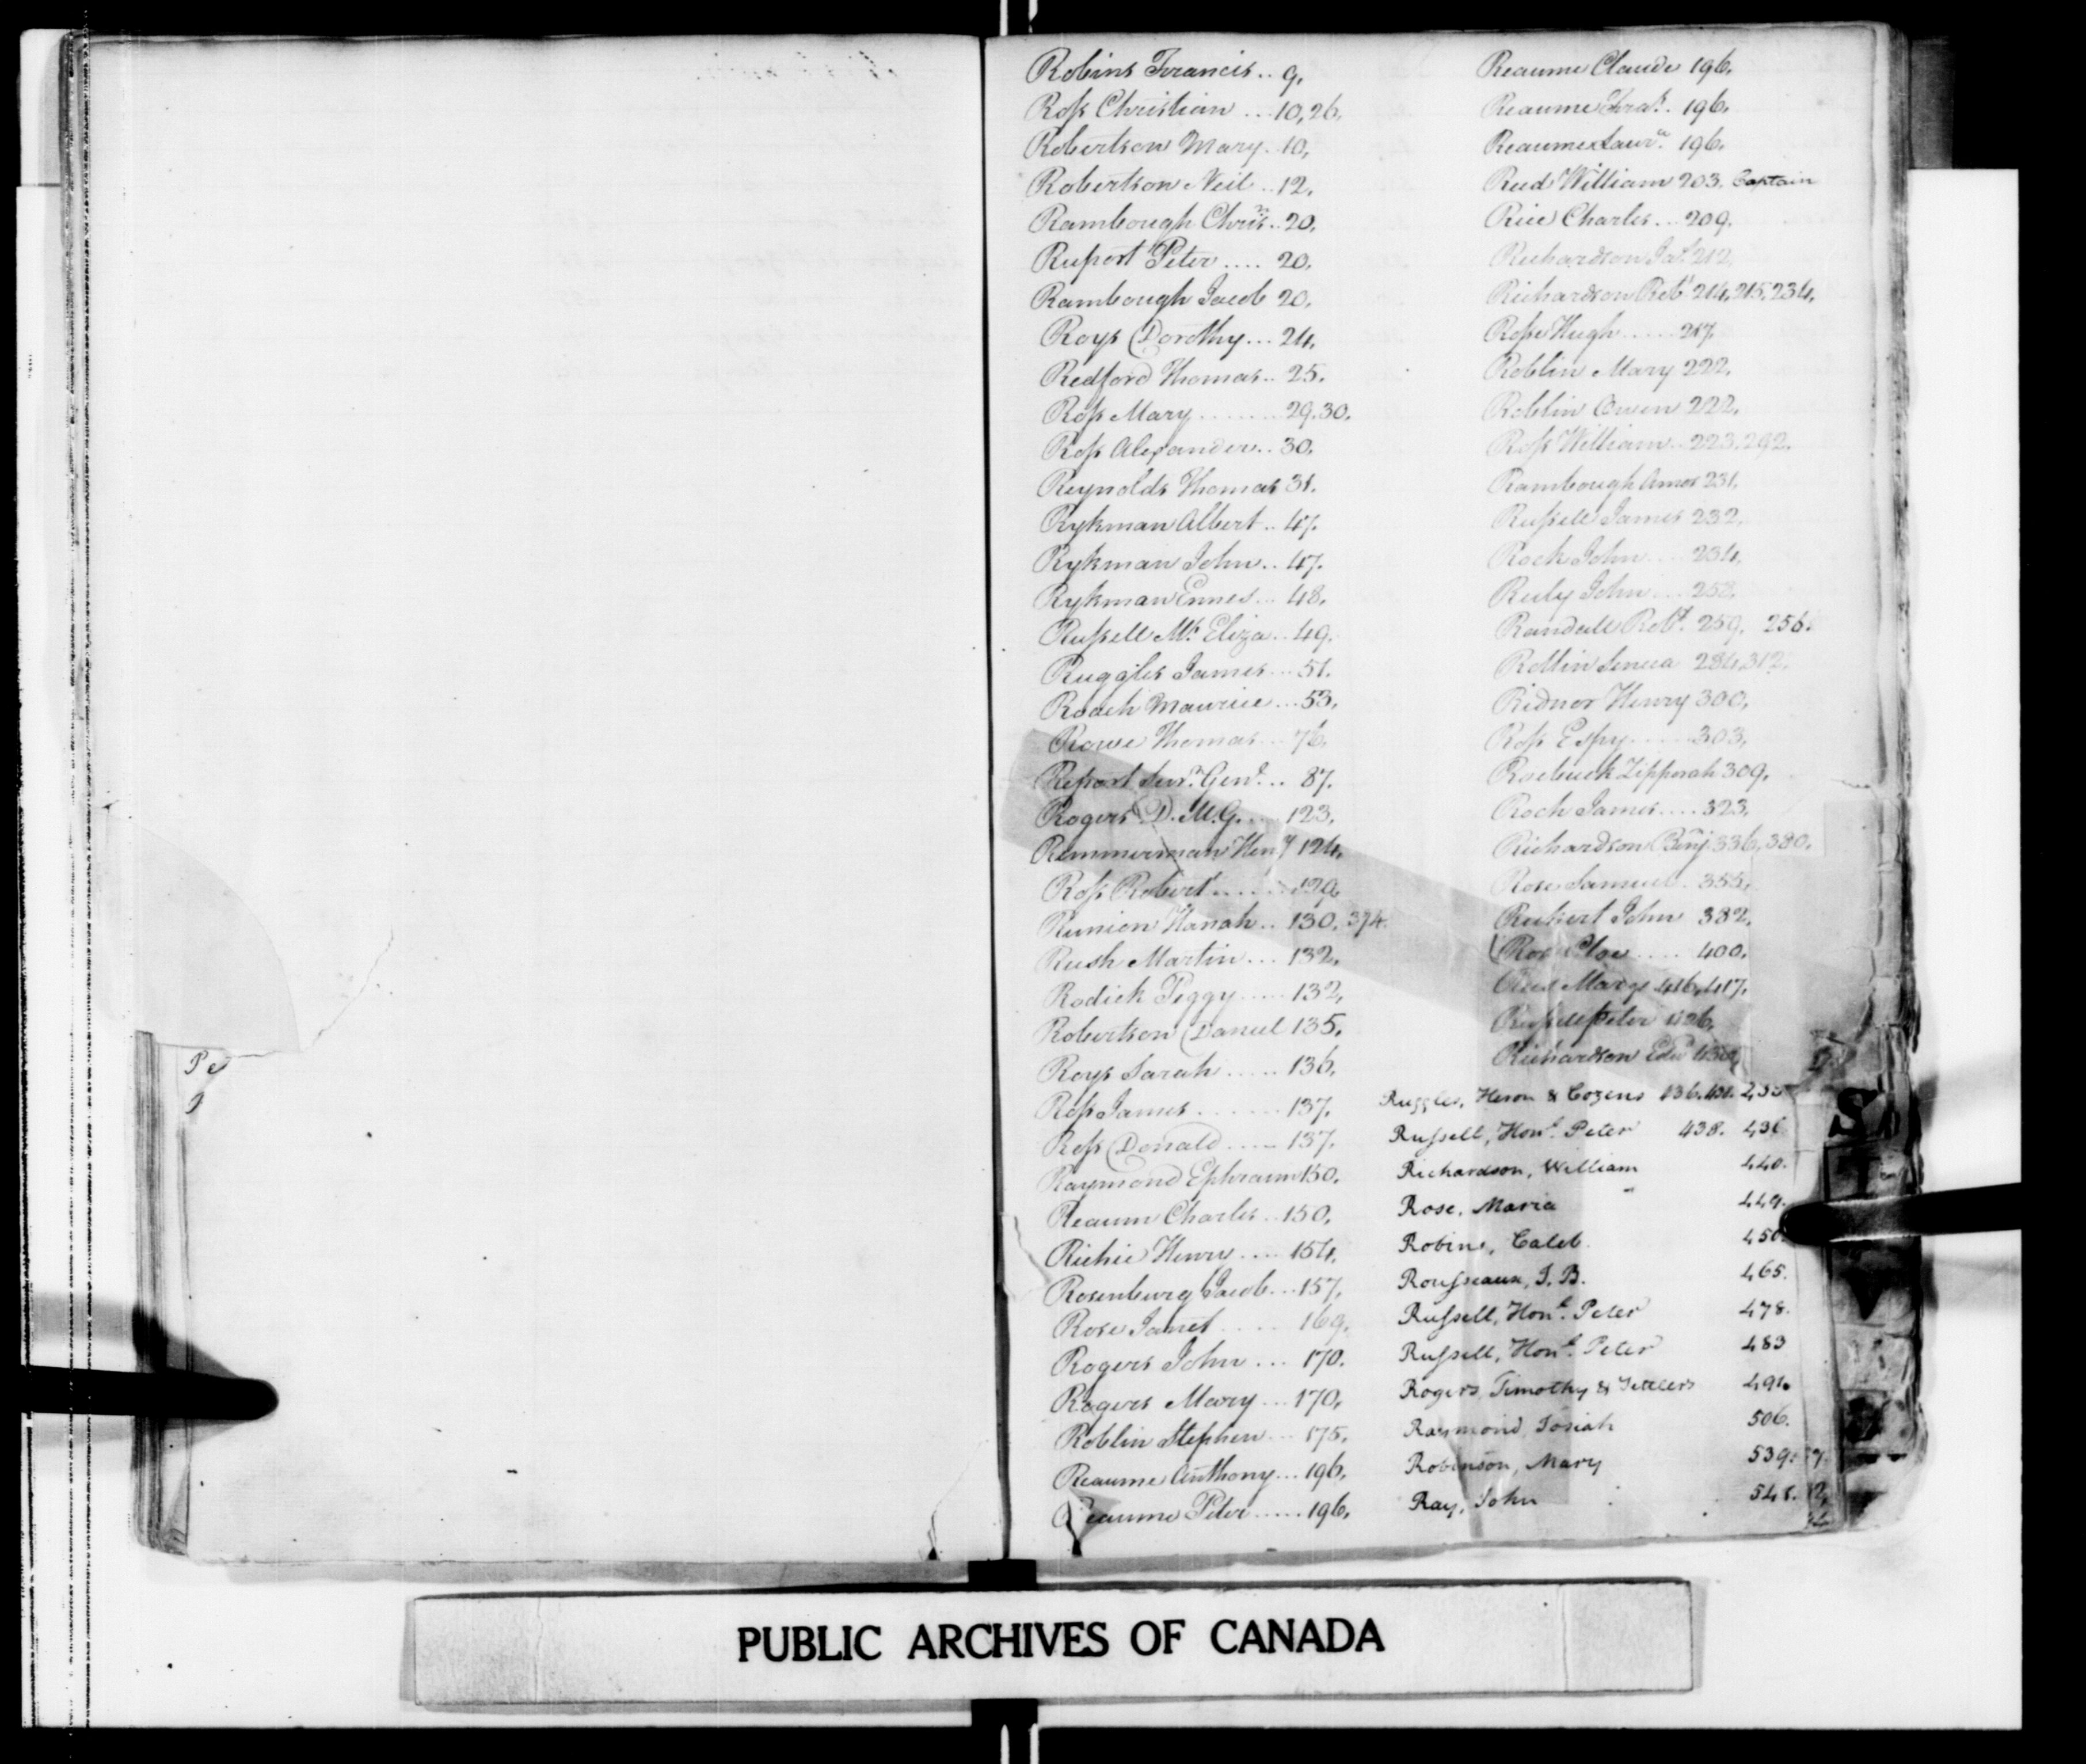 Robins Francis .. 9.
Ross Christian ... 10, 26.
Robertson Mary . 10,
Robertson Neil .. 12.
Rambough Chrisn .. 20,
Ruport Peter .... 20.
Rambough Jacob 20.
Roys Dorothy ... 24.
Redford Thomas .. 25.
Ross Mary ....... 29.30.
Ross Alexander .. 30.
Reynolds Thomas 31.
Rykman Albert .. 47.
Rykman John .. 47.
Rykman Ennes ... 48.
Russell Mrs Eliza .. 49.
Ruggles James ... 51.
Roach Maurice ... 53,
Rowe Thomas ... 76.
Report Survr Genl ... 87.
Rogers D. M. G. ... 123,
Remmerman Heny 124.
Ross Robert ...... 129
Runion Hanah .. 130. 374.
Rush Martin ... 132,
Rodick Peggy ..... 132,
Robertson Daniel 135.
Roys Sarah ..... 136,
Ross James ....... 137.
Ross Donald ..... 137.
Raymond Ephraim 150.
Reaum Charles .. 150,
Richie Henry .... 154,
Rosenburg Jacob ... 157,
Rose Janet .... 169.
Rogers John ... 170.
Rogers Mary ... 170,
Roblin Stephen ... 175,
Reaume Anthony ... 196,
Reaume Peter ..... 196,
Reaume Claude 196.
Reaume 196.
Reaume 196.
Reed William 203. Captain
Rice Charles ... 209.
Richardson Jas. 212
Richardson Robt 214, 215, 234,
Rosse Hugh ..... 217.
Roblin Mary 222.
Roblin Owen 222.
Ross William .. 223. 292.
Rambough Amos 231.
Russell James 232.
Rock John .... 234,
Ruly John .... 252.
Randall Robt. 259. 256.
Roblin 284, 312.
Ridner Henry 300,
Ross Espy ..... 303,
Roebuck Zipporah 309.
Roch James .... 323,
Richardson Benj. 336, 380.
Rose Samuel . 355,
Rubert John 382.
400.
416, 417,
Russell Peter 426,
Richardson Edwd
Ruggles, Heron & Cozens 436.
Russell, Honl. Peter 438.
Richardson, William 440.
Rose, Maria 449.
Robins, Caleb. 450.
Rousseaux, J. B. 465.
Russell, Honl. Peter 478.
Russell, Honl. Peter 483
Rogers, Timothy & Settlers 491.
Raymond, Josiah 506.
Robinson, Mary 539.
Ray, John 548.
PUBLIC ARCHIVES OF CANADA